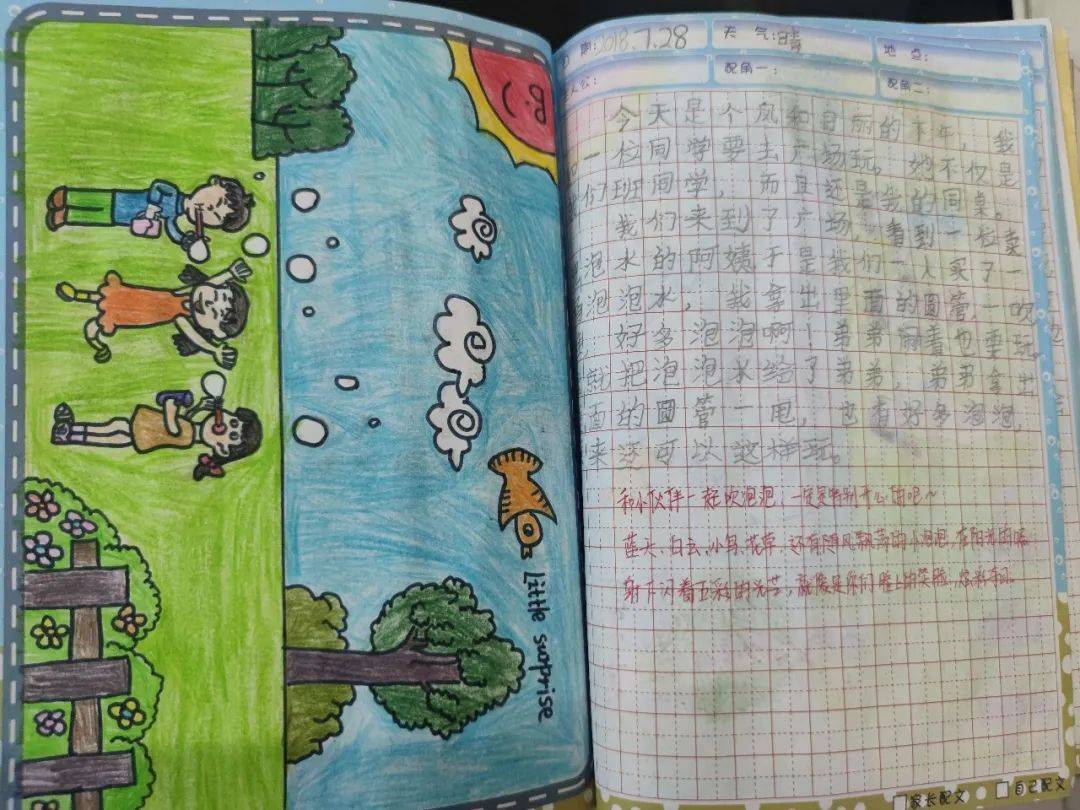 Little surprise
期:2018.7.28 天 气:晴 地 点:
人公: 配角一: 配角二:
今天是个风和日丽的下午,我
一位同学要去广场玩。她不仅是
们班同学,而且还是我的同桌。
我们来到了广场,看到一位卖
泡水的阿姨于是我们一人买了一
泡泡水,我拿出里面的圆管,一吹,
好多泡泡啊!弟弟闹着也要玩,
就把泡泡水给了弟弟,弟弟拿出
面的圆管一甩,也有好多泡泡,
来还可以这样玩。
和小伙伴一起吹泡泡,一定是特别开心的吧~
蓝天、白云、小鸟、花草,还有随风飘荡的小泡泡,在阳光的照
射下闪着五彩的光芒,就像是你们脸上的笑脸,
家长配文 自己配文